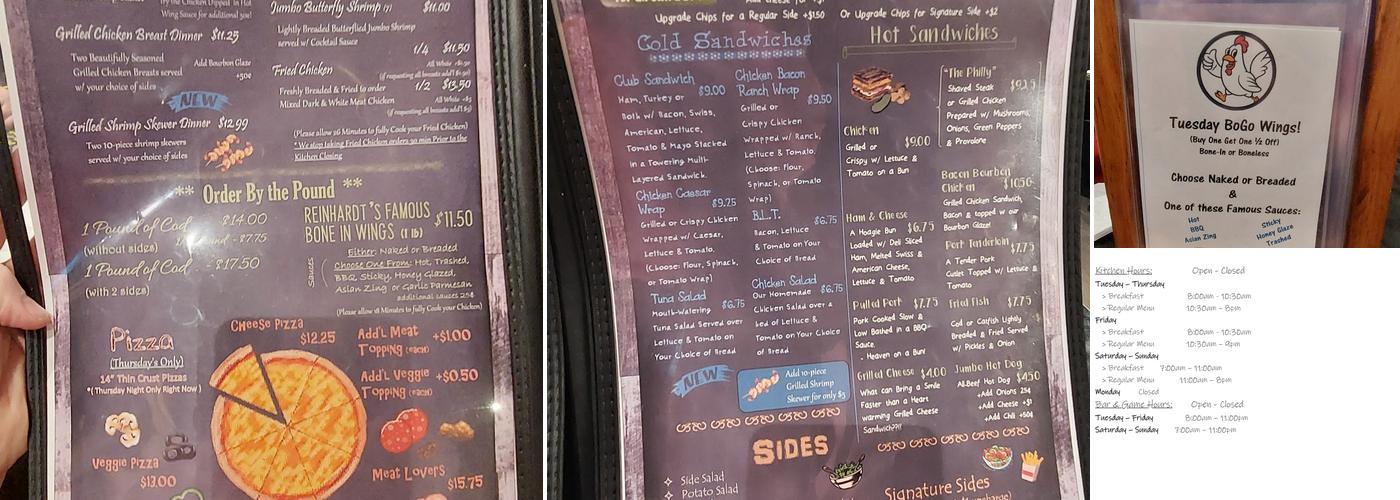 Try the Chicken Dipped In Hot
Wing Sauce for additional 50¢!
Grilled Chicken Breast Dinner $11.25
Two Beautifully Seasoned
Grilled Chicken Breasts served
w/ your choice of sides
Add Bourbon Glaze
+50¢
NEW
Grilled Shrimp Skewer Dinner $12.99
Two 10-piece shrimp skewers
served w/ your choice of sides
Jumbo Butterfly Shrimp (7) $11.00
Lightly Breaded Butterflied Jumbo Shrimp
served w/ Cocktail Sauce
Fried Chicken
1/4 $11.50
All White
(if requesting all breasts add'l
1/2 $13.50
Freshly Breaded & Fried to order
Mixed Dark & White Meat Chicken
All White +$3
(if requesting all breasts add'l $1)
(Please allow 16 Minutes to fully Cook your Fried Chicken)
* We stop taking Fried Chicken orders 30 min Prior to the
Kitchen Closing
** Order By the Pound **
1 Pound of Cod - $14.00
(without sides)
- $7.75
1 Pound of Cod - $17.50
(with 2 sides)
REINHARDT'S FAMOUS
BONE IN WINGS (1 lb) $11.50
Either: Naked or Breaded
Sauces
Choose One From: Hot, Trashed,
BBQ, Sticky, Honey Glazed,
Asian Zing or Garlic Parmesan
additional sauces 25¢
(Please allow 18 Minutes to fully Cook your Chicken)
Pizza
(Thursday's Only)
14" Thin Crust Pizzas
*( Thursday Night Only Right Now )
Cheese Pizza
$12.25
Add'l Meat
Topping (each)
+$1.00
Add'l Veggie
Topping (each)
+$0.50
Veggie Pizza
$13.00
Meat Lovers
$15.75
Upgrade Chips for a Regular Side +$1.50 Or Upgrade Chips for Signature Side +$2
Cold Sandwiches
Club Sandwich
$9.00
Ham, Turkey or
Both w/ Bacon, Swiss,
American, Lettuce,
Tomato & Mayo Stacked
in a Towering Multi-
Layered Sandwich.
Chicken Caesar
Wrap
$9.25
Grilled or Crispy Chicken
Wrapped w/ Caesar,
Lettuce & Tomato.
(Choose: Flour, Spinach,
or Tomato Wrap)
Tuna Salad
$6.75
Mouth-Watering
Tuna Salad Served over
Lettuce & Tomato on
Your Choice of Bread
NEW
Chicken Bacon
Ranch Wrap
$9.50
Grilled or
Crispy Chicken
Wrapped w/ Ranch,
Lettuce & Tomato.
(Choose: Flour,
Spinach, or Tomato
Wrap)
B.L.T.
$6.75
Bacon, Lettuce
& Tomato on Your
Choice of Bread
Chicken Salad
$6.75
Our Homemade
Chicken Salad over a
bed of Lettuce &
Tomato on Your Choice
of Bread
Add 10-piece
Grilled Shrimp
Skewer for only $5
Hot Sandwiches
Chicken
$9.00
Grilled or
Crispy w/ Lettuce &
Tomato on a Bun
Ham & Cheese
$6.75
A Hoagie Bun
Loaded w/ Deli Sliced
Ham, Melted Swiss &
American Cheese,
Lettuce & Tomato
Pulled Pork $7.75
Pork Cooked Slow &
Low Bathed in a BBQ
Sauce.
- Heaven on a Bun!
Grilled Cheese $4.00
What can Bring a Smile
Faster than a Heart
warming Grilled Cheese
Sandwich??!!
"The Philly"
Shaved Steak
or Grilled Chicken
Prepared w/ Mushrooms,
Onions, Green Peppers
& Provolone
Bacon Bourbon
Chicken
$10.50
Grilled Chicken Sandwich,
Bacon & topped w/ our
Bourbon Glaze!
Pork Tenderloin
$7.75
A Tender Pork
Cutlet Topped w/ Lettuce &
Tomato
Fried Fish $7.75
Cod or Catfish Lightly
Breaded & Fried Served
w/ Pickles & Onion
Jumbo Hot Dog
$4.50
All-Beef Hot Dog
+Add Onions 25¢
+Add Cheese +$1
+Add Chili +50¢
SIDES
Side Salad
Potato Salad
Signature Sides
Tuesday BoGo Wings!
(Buy One Get One ½ Off)
Bone-In or Boneless
Choose Naked or Breaded
&
One of these Famous Sauces:
Hot
BBQ
Asian Zing
Sticky
Honey Glaze
Trashed
Kitchen Hours: Open - Closed
Tuesday – Thursday
> Breakfast 8:00am - 10:30am
> Regular Menu 10:30am – 8pm
Friday
> Breakfast 8:00am - 10:30am
> Regular Menu 10:30am – 9pm
Saturday – Sunday
> Breakfast 7:00am – 11:00am
> Regular Menu 11:00am – 8pm
Monday Closed
Bar & Game Hours: Open - Closed
Tuesday – Friday 8:00am – 11:00pm
Saturday – Sunday 7:00am – 11:00pm